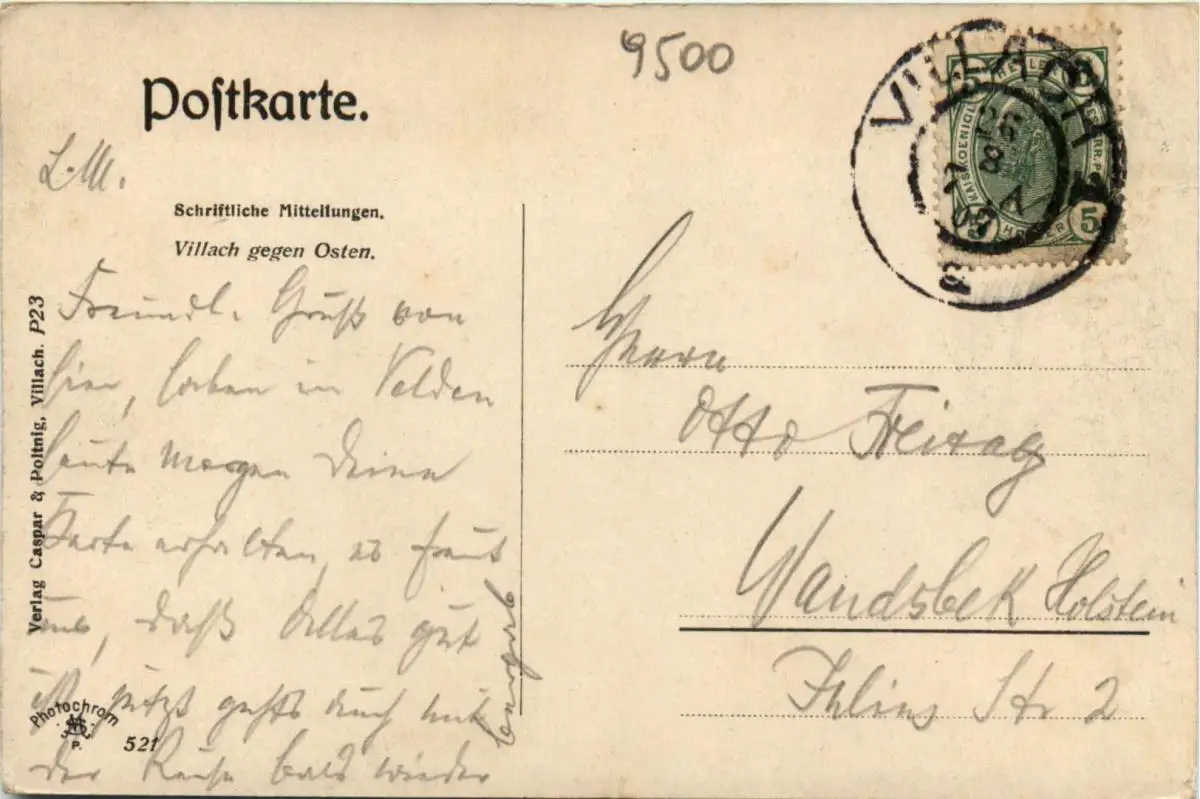 9500
Postkarte.
L. M.
Schriftliche Mitteilungen.
Villach gegen Osten.
Freundl. Gruß von
hier, haben in Velden
heute Morgen Deine
Karte erhalten, es freut
uns, daß Alles gut
ist, jetzt gehts auch mit
der Reise bald wieder
bergab
Verlag Caspar & Poltnig, Villach. P23
Photochrom
P.
521
VILLACH
5 5
5
KAIS. KOENIGL.
HELLER HELLER
Herrn
Otto Freitag
Wandsbek Holstein
Str 2